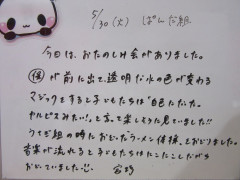 5/30(火) ぱんだ組
今日は、おたのしみ会がありました。
が前に出て、透明だ水の色が変わる
マジックをすると子どもたちは「色んだった。
カルピスみたい!」と言って楽しそうに見ていました!!
うさぎ組の時におどったラーメン体操、もおどりました。
音楽が流れると子どもたちはにこにこしながら
おどっていました!!